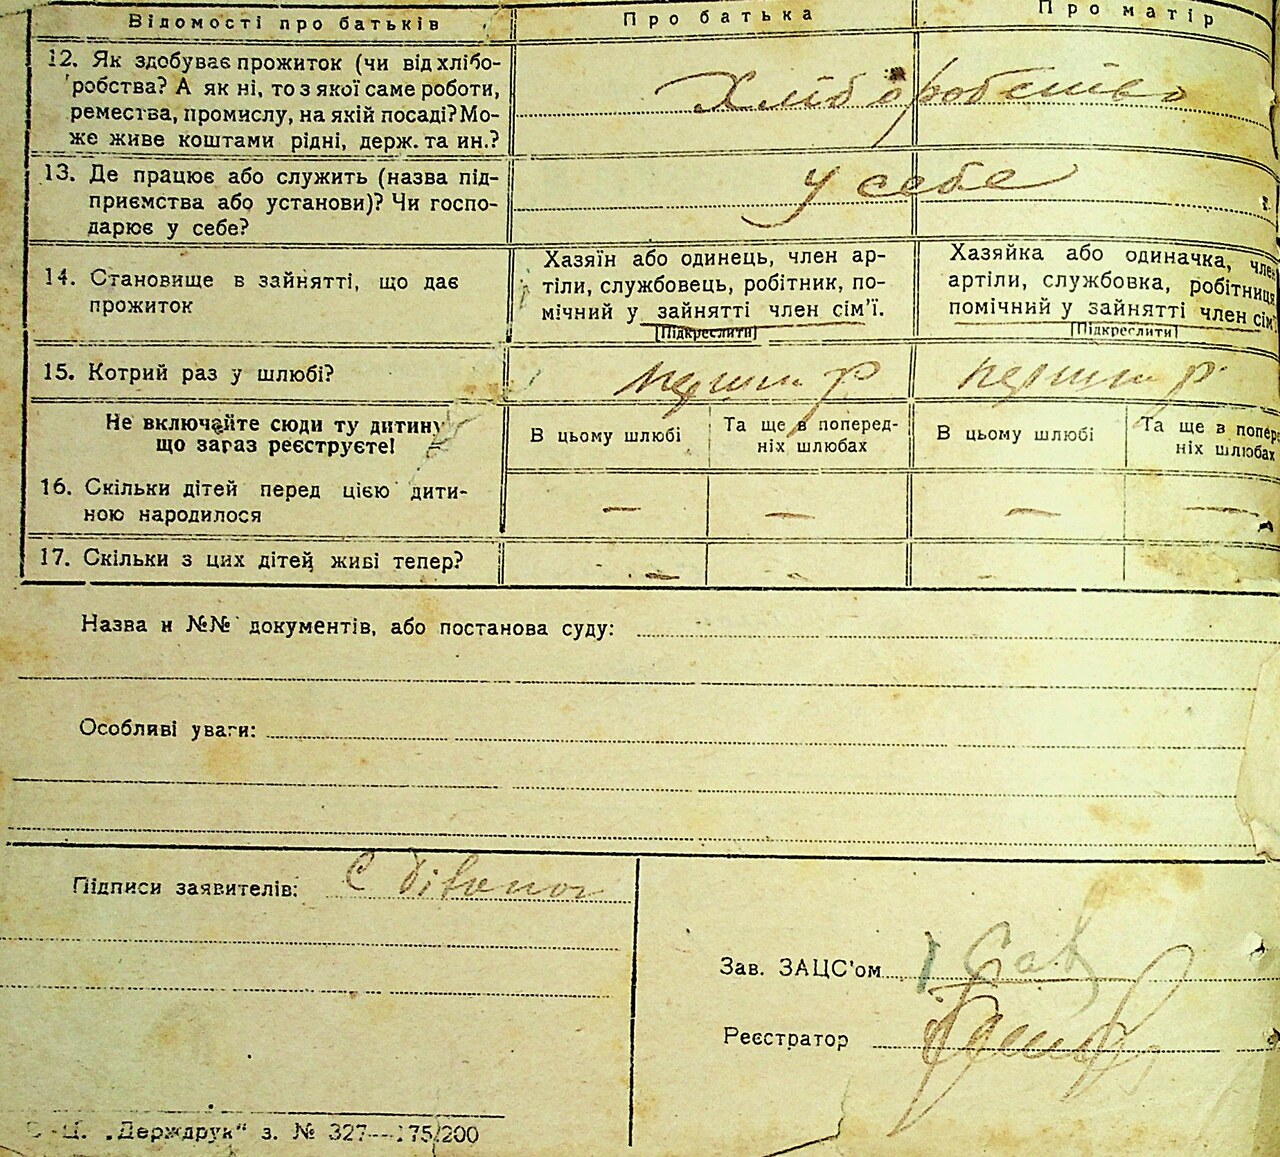 Відомості про батьків Про батька Про матір
12. Як здобуває прожиток (чи від хлібо-
робства? А як ні, то з якої саме роботи,
ремества, промислу, на якій посаді? Мо-
же живе коштами рідні, держ. та ин.?
Хліборобство
13. Де працює або служить (назва під-
приємства або установи)? Чи госпо-
дарює у себе?
у себе
14. Становище в зайнятті, що дає
прожиток
Хазяїн або одинець, член ар-
тіли, службовець, робітник, по-
мічний у зайнятті член сім'ї.
[Підкреслити]
Хазяйка або одиначка, член
артіли, службовка, робітниця
помічний у зайнятті член сім'ї
[Підкреслити]
15. Котрий раз у шлюбі? перший р перший р
Не включайте сюди ту дитину
що зараз реєструєте!
В цьому шлюбі
Та ще в поперед-
ніх шлюбах
В цьому шлюбі
Та ще в попере
ніх шлюбах
16. Скільки дітей перед цією дити-
ною народилося
— — — —
17. Скільки з цих дітей живі тепер?
— — —
Назва и №№ документів, або постанова суду:
Особливі уваги:
Підписи заявителів:
Зав. ЗАЦС'ом
Реєстратор
Ц. „Держдрук“ з. № 327—175/200